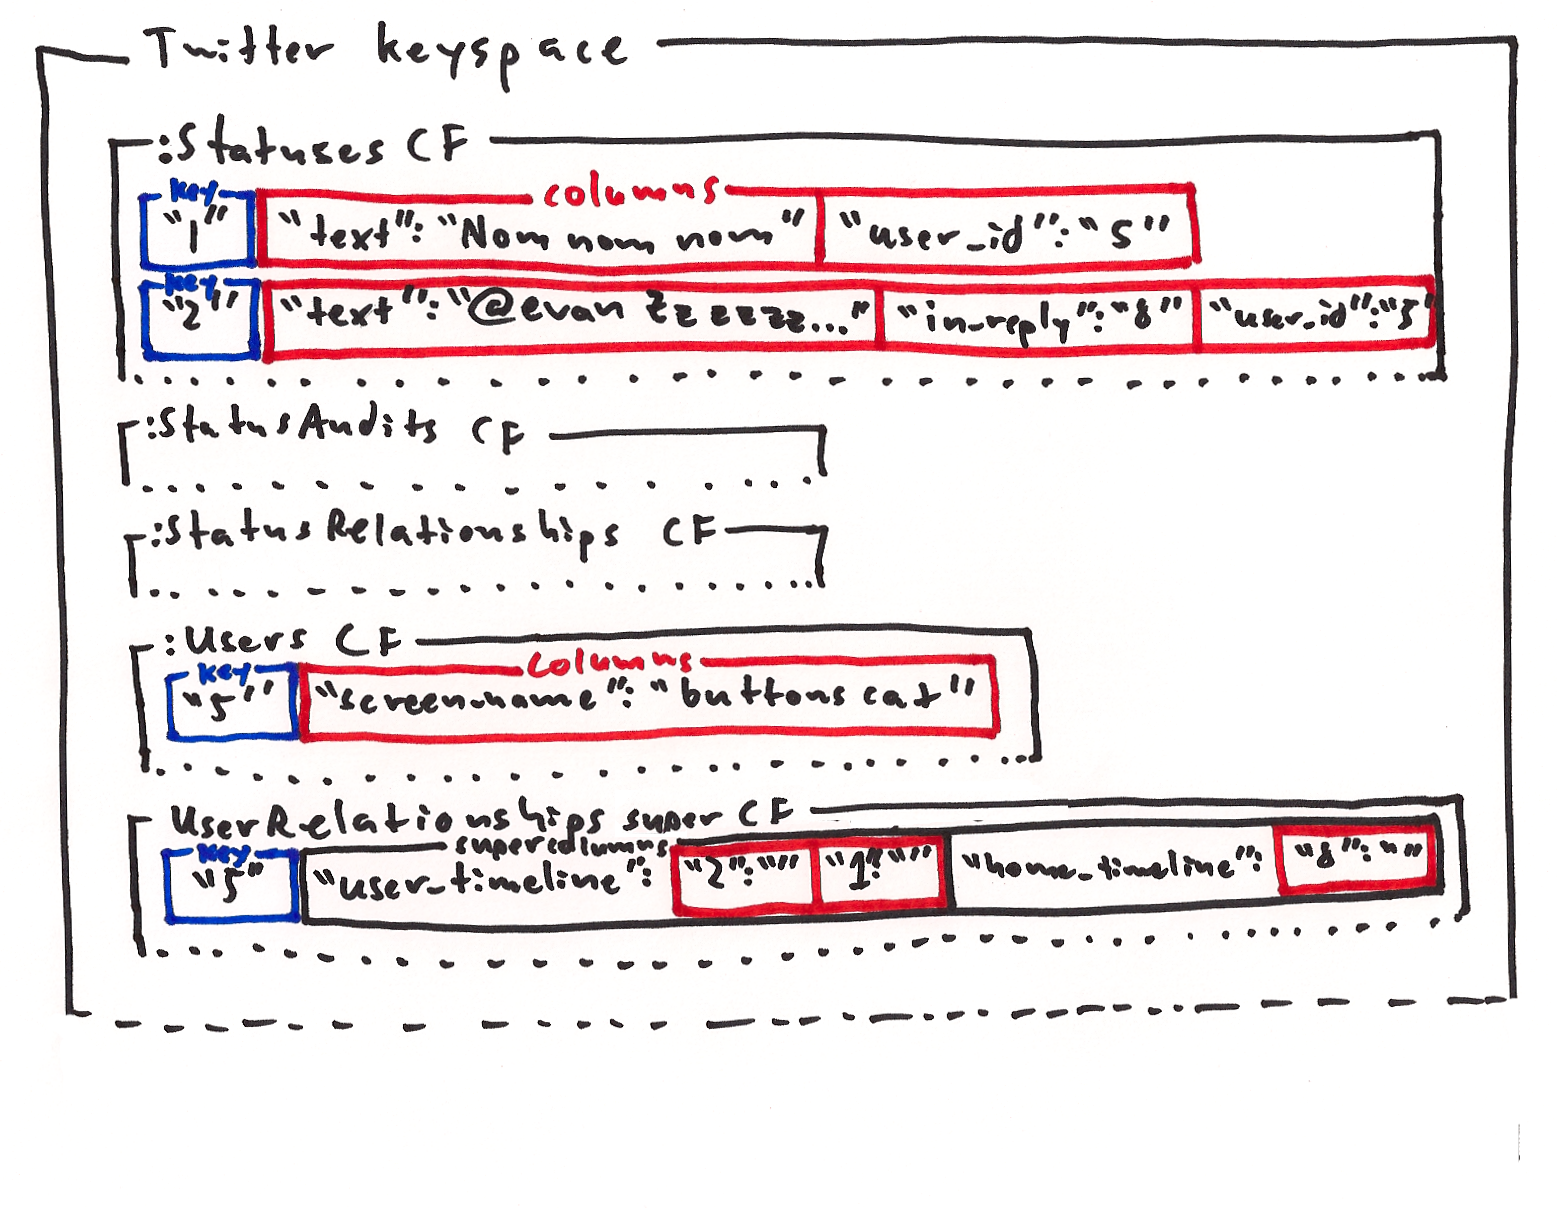 Twitter keyspace
:Statuses CF
key columns
"1" "text": "Nom nom nom" "user_id": "5"
key
"2" "text": "@evan zzzzzz..." "in_reply": "8" "user_id": "5"
:StatusAudits CF
:StatusRelationships CF
:Users CF
key columns
"5" "screen_name": "buttons cat"
UserRelationships super CF
key supercolumns
"5" "user_timeline": "2": "" "1": "" "home_timeline": "8": ""